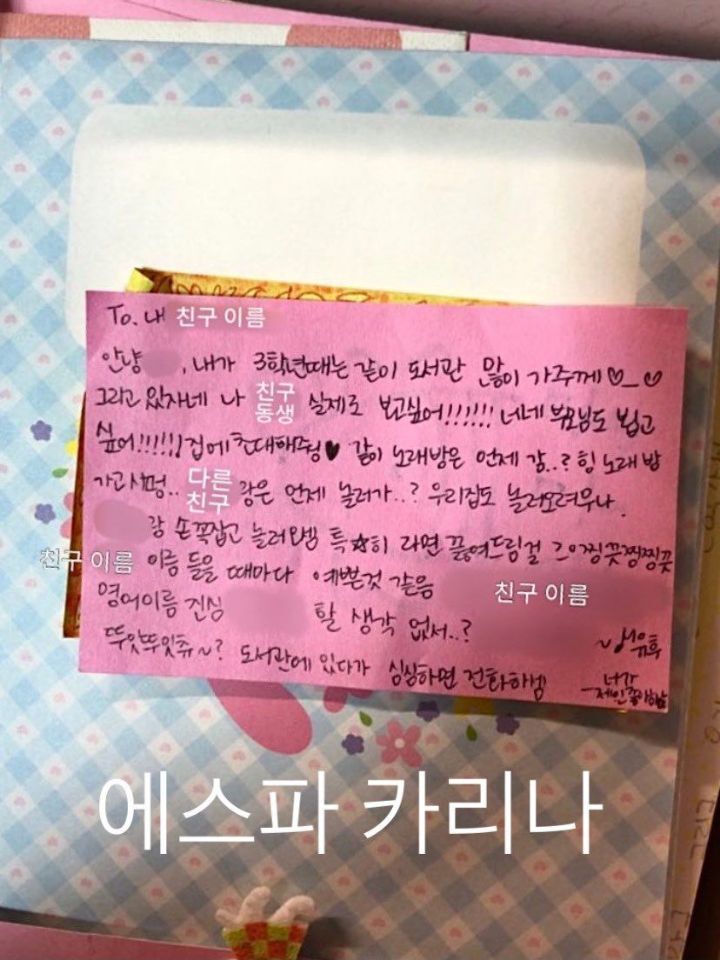 To. 내 친구 이름
안녕 , 내가 3학년때는 같이 도서관 많이 가주께♡_♡
그리고 있자네 나 친구 동생 실제로 보고싶어!!!!!! 너네 부모님도 뵙고
싶어!!!!!! 집에 초대해주겅♥ 같이 노래방은 언제 감..? 힝 노래방
가고시펑.. 다른 친구 랑은 언제 놀러가..? 우리집도 놀러오려무나.
랑 손꼭잡고 놀러오셈 특☆히 라면 끓여드림걸
친구 이름 이름 들을 때마다 예쁜것 같음
영어이름 진심 할 생각 없서..? 친구 이름
~? 도서관에 있다가 심심하면 전화하셈
에스파 카리나